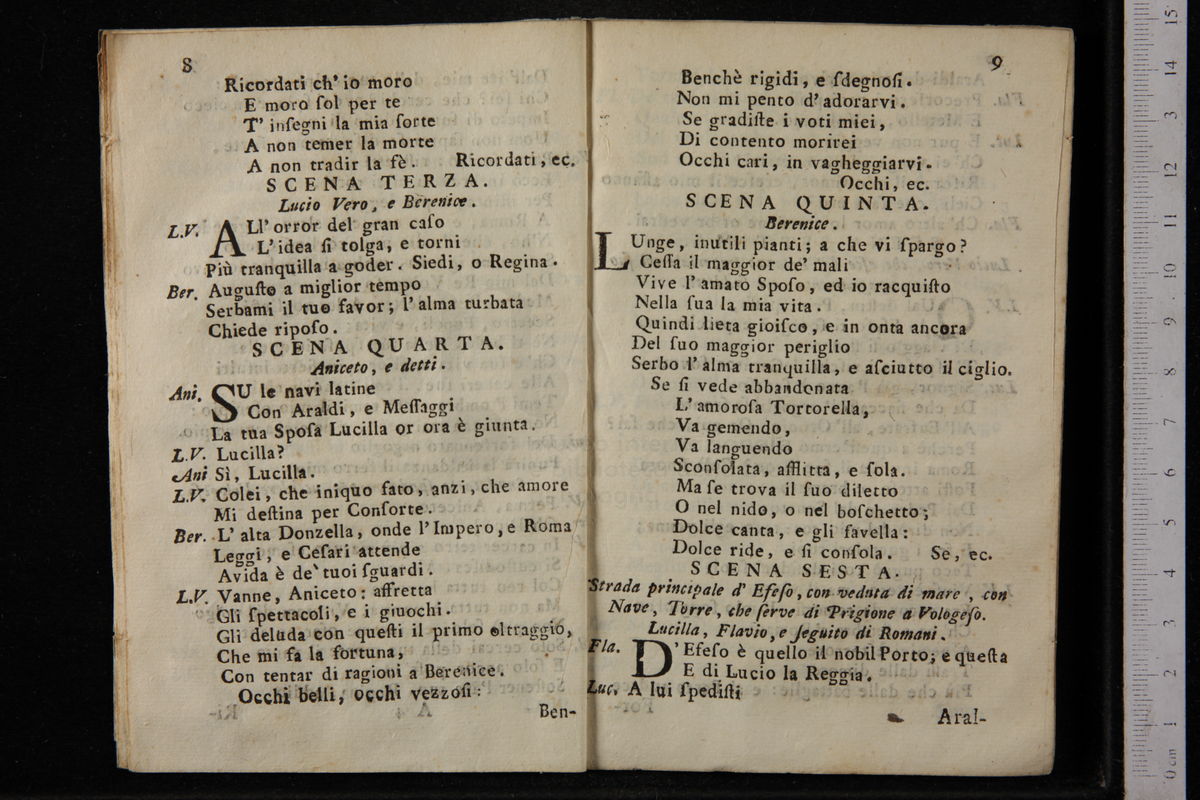 8
Ricordati ch' io moro
E moro ſol per te
T' inſegni la mia ſorte
A non temer la morte
A non tradir la fè. Ricordati, ec.
SCENA TERZA.
Lucio Vero, e Berenice.
L.V. ALl' orror del gran caſo
L'idea ſi tolga, e torni
Più tranquilla a goder. Siedi, o Regina.
Ber. Auguſto a miglior tempo
Serbami il tuo favor; l'alma turbata
Chiede ripoſo.
SCENA QUARTA.
Aniceto, e detti.
Ani. SU le navi latine
Con Araldi, e Meſſaggi
La tua Spoſa Lucilla or ora è giunta.
L.V. Lucilla?
Ani Sì, Lucilla.
L.V. Colei, che iniquo fato, anzi, che amore
Mi deſtina per Conſorte.
Ber. L' alta Donzella, onde l'Impero, e Roma
Leggi, e Ceſari attende
Avida è de' tuoi ſguardi.
L.V. Vanne, Aniceto: affretta
Gli ſpettacoli, e i giuochi.
Gli deluda con queſti il primo oltraggio,
Che mi fa la fortuna,
Con tentar di ragioni a Berenice.
Occhi belli, occhi vezzoſi:
Ben-
9
Benchè rigidi, e ſdegnoſi.
Non mi pento d' adorarvi.
Se gradiſte i voti miei,
Di contento morirei
Occhi cari, in vagheggiarvi.
Occhi, ec.
SCENA QUINTA.
Berenice.
LUnge, inutili pianti; a che vi ſpargo?
Ceſſa il maggior de' mali
Vive l' amato Spoſo, ed io racquiſto
Nella ſua la mia vita.
Quindi lieta gioiſco, e in onta ancora
Del ſuo maggior periglio
Serbo l' alma tranquilla, e aſciutto il ciglio.
Se ſi vede abbandonata
L' amoroſa Tortorella,
Va gemendo,
Va languendo
Sconſolata, afflitta, e ſola.
Ma ſe trova il ſuo diletto
O nel nido, o nel boſchetto;
Dolce canta, e gli favella:
Dolce ride, e ſi conſola. Se, ec.
SCENA SESTA.
Strada principale d' Efeſo, con veduta di mare, con
Nave, Torre, che ſerve di Prigione a Vologeſo.
Lucilla, Flavio, e ſeguito di Romani.
Fla. D'Efeſo è quello il nobil Porto; e queſta
E di Lucio la Reggia.
Luc. A lui ſpediſti
Aral-
0 cm 1 2 3 4 5 6 7 8 9 10 11 12 3 14 15